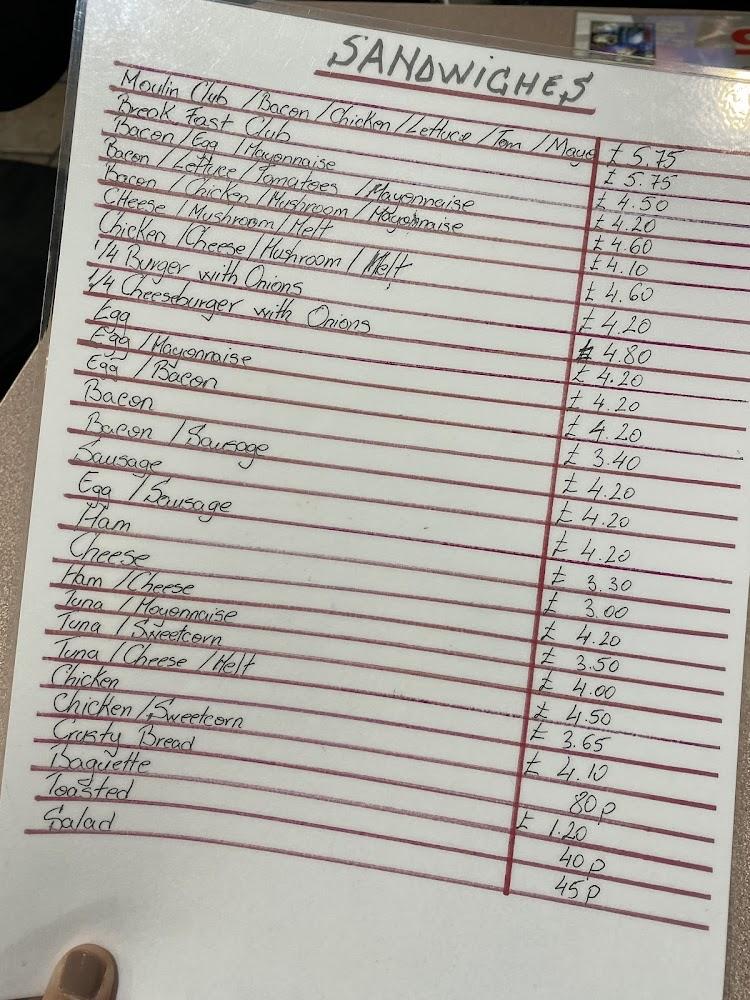 SANDWICHES
Moulin Club /Bacon /Chicken /Lettuce /Tom /Mayo £ 5.75
Break Fast Club £ 5.75
Bacon/Egg /Mayonnaise £ 4.50
Bacon /Lettuce /Tomatoes /Mayonnaise £ 4.20
Bacon /Chicken /Mushroom /Mayonnaise £ 4.60
Cheese /Mushroom /Melt £ 4.10
Chicken /Cheese /Mushroom /Melt £ 4.60
1/4 Burger with Onions £ 4.20
1/4 Cheeseburger with Onions £ 4.80
Egg £ 4.20
Egg /Mayonnaise £ 4.20
Egg /Bacon £ 4.20
Bacon £ 3.40
Bacon /Sausage £ 4.20
Sausage £ 4.20
Egg /Sausage £ 4.20
Ham £ 3.30
Cheese £ 3.00
Ham /Cheese £ 4.20
Tuna /Mayonnaise £ 3.50
Tuna /Sweetcorn £ 4.00
Tuna /Cheese /Melt £ 4.50
Chicken £ 3.65
Chicken /Sweetcorn £ 4.10
Crusty Bread 80p
Baguette £ 1.20
Toasted 40p
Salad 45p